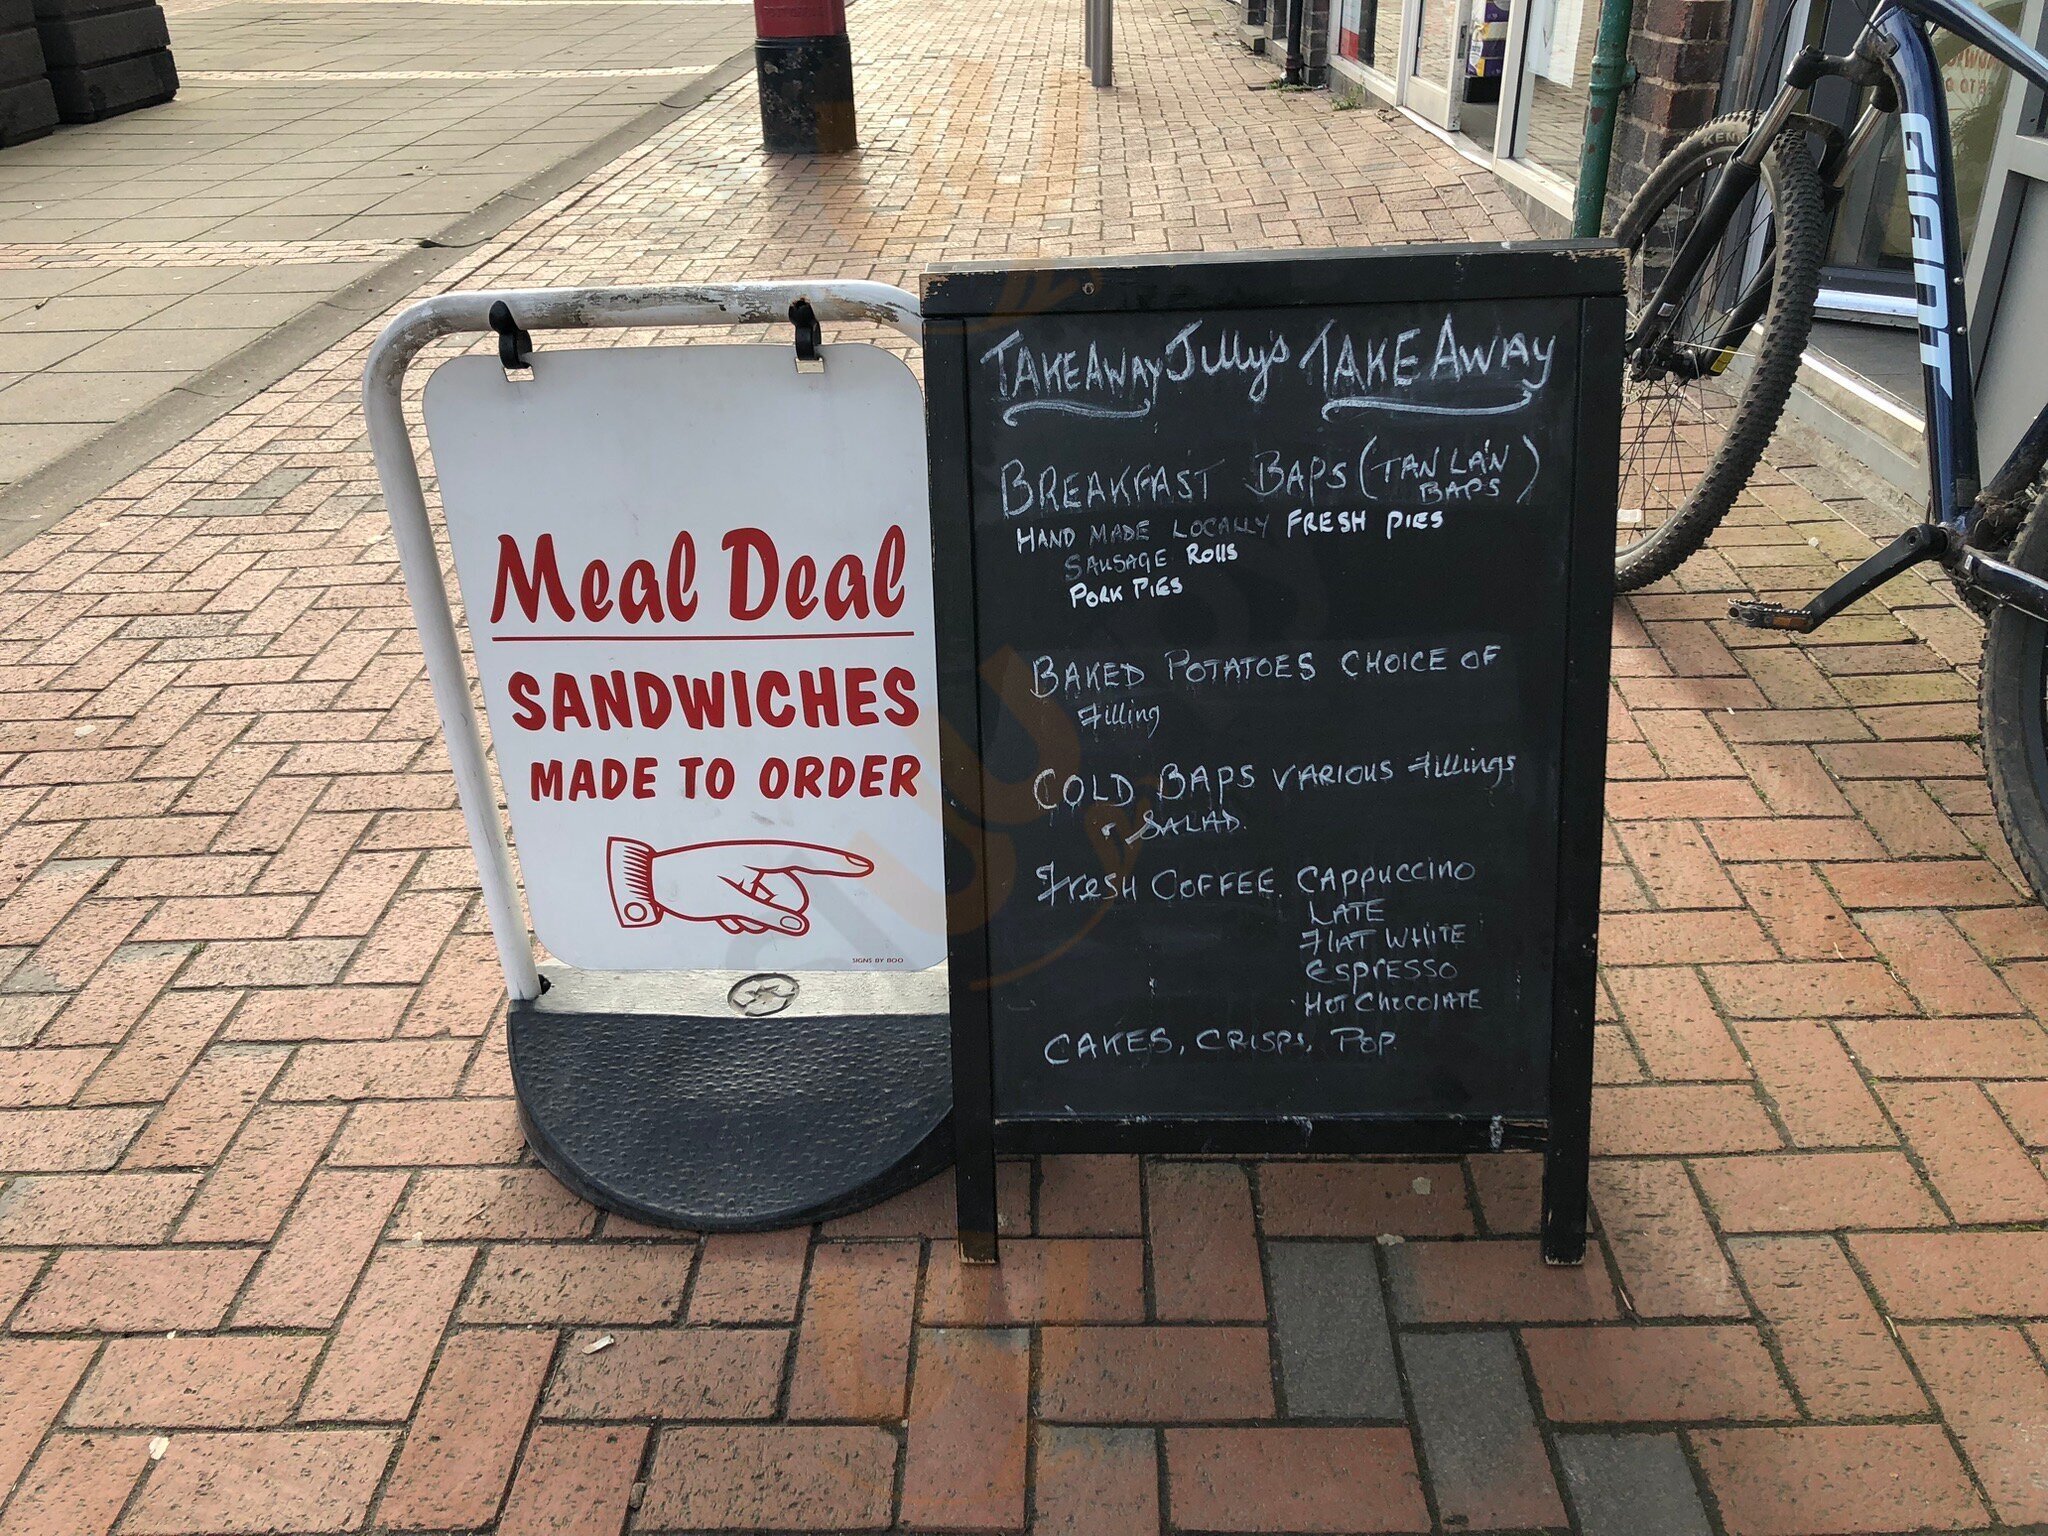 Meal Deal
SANDWICHES
MADE TO ORDER
SIGNS BY BOO
TAKEAWAY Jilly's TAKE AWAY
BREAKFAST BAPS (TAN LA'N
BAPS)
HAND MADE LOCALLY FRESH PIES
SAUSAGE Rolls
PORK PIES
BAKED POTATOES CHOICE OF
Filling
COLD BAPS VARIOUS Fillings
• SALAD.
FresH COFFEE. CAppuccino
LATE
FlAT WHITE
ESPRESSO
HOT CHOCOLATE
CAKES, CRISPS, POP.
GIANT
KEN